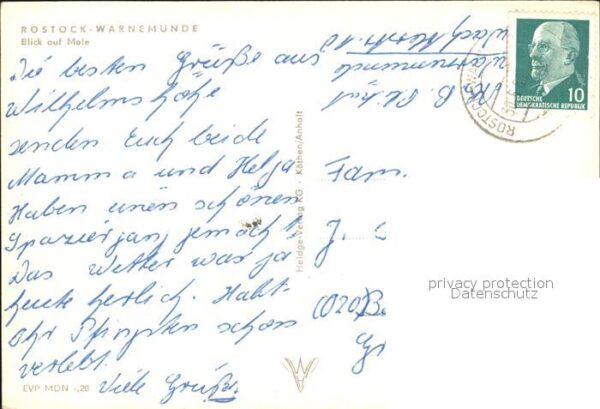 ROSTOCK-WARNEMÜNDE
Blick auf Mole
Die besten Grüße aus
Wilhelmshöhe
senden Euch beide
Mamma und Helga
Haben einen schönen
Spaziergang gemacht.
Das Wetter war ja
heute herlich. Habt
Ihr Pfingsten schon
verlebt.
Viele Grüße.
EVP MDN -,20
Heldge-Verlag KG · Köthen/Anhalt
Warnemünde
Fam.
J.
(020)B.
DEUTSCHE
DEMOKRATISCHE REPUBLIK
10
ROSTOCK
privacy protection
Datenschutz